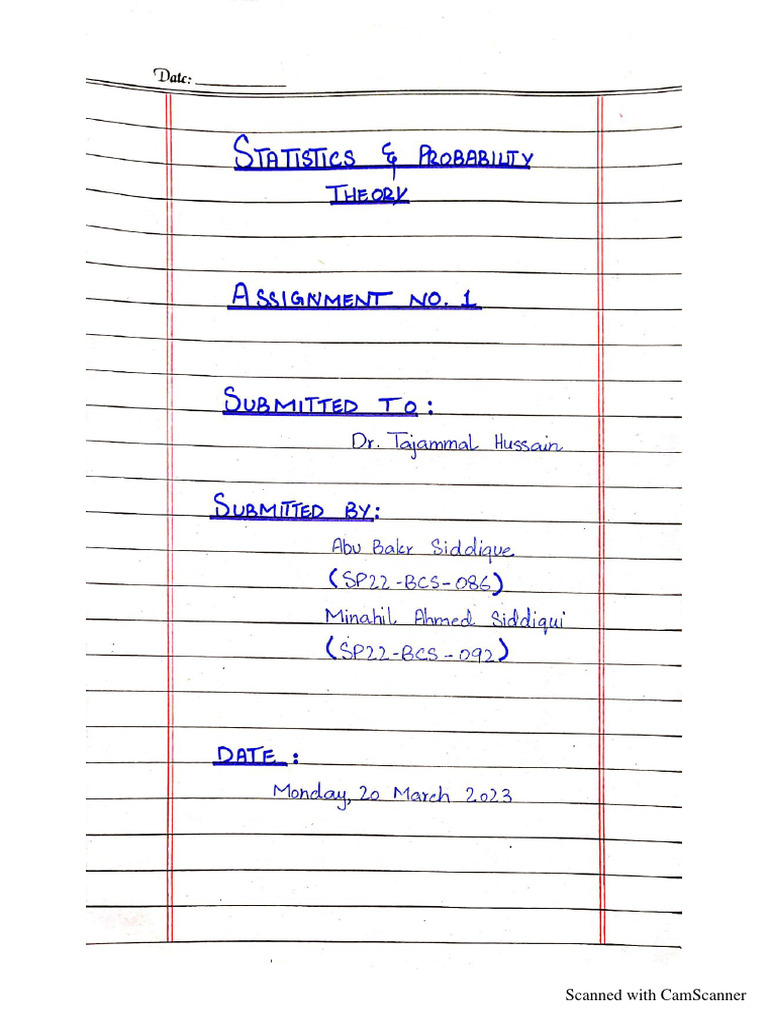 Date:
STATISTICS & PROBABILITY
THEORY
ASSIGNMENT NO. 1
SUBMITTED TO:
Dr. Tajammal Hussain
SUBMITTED BY:
Abu Bakr Siddique
(SP22-BCS-086)
Minahil Ahmed Siddiqui
(SP22-BCS-092)
DATE:
Monday, 20 March 2023
Scanned with CamScanner